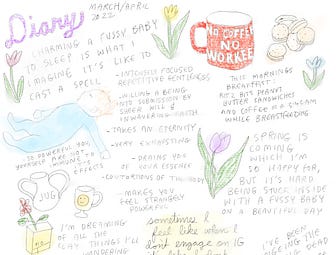 Diary
MARCH/APRIL
2022
CHARMING A FUSSY BABY
TO SLEEP IS WHAT I
IMAGINE IT'S LIKE TO
CAST A SPELL
- INTENSELY FOCUSED
REPETITIVE GENTLENESS
- WILLING A BEING
INTO SUBMISSION BY
SHEER WILL &
UNWAVERING FAITH
- TAKES AN ETERNITY
- VERY EXHAUSTING
- DRAINS YOU
OF YOUR ESSENCE
- CONTORTIONS OF THE BODY
- MAKES YOU
FEEL STRANGELY
POWERFUL
SO POWERFUL YOU,
YOURSELF ARE NOT
TO
EFFECTS
NO COFFEE
NO
WORKEE
THIS MORNINGS
BREAKFAST:
RITZ BITS PEANUT
BUTTER SANDWICHES
AND COFFEE ICE CREAM
WHILE BREASTFEEDING
SPRING IS
COMING
WHICH I'M
SO HAPPY FOR,
BUT IT'S HARD
BEING STUCK INSIDE
WITH A FUSSY BABY
ON A BEAUTIFUL DAY
JUG
I'M DREAMING
OF ALL THE
CLAY THINGS I'LL
sometimes I
feel like when I
don't engage on IG
I'VE BEEN